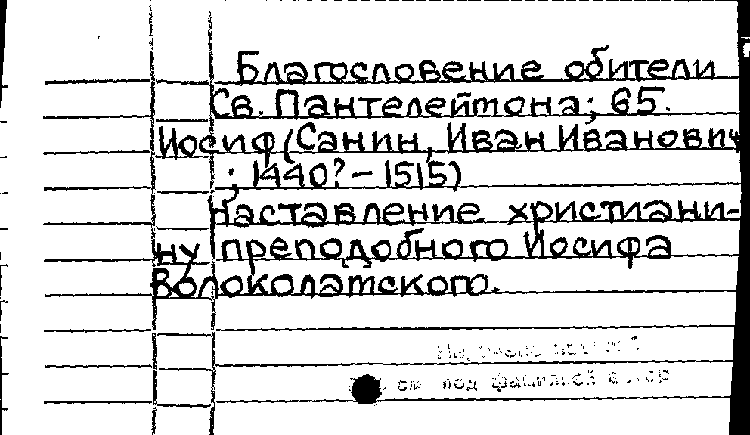 Благословение обители
Св. Пантелеймона; 65.
Иосиф (Санин, Иван Иванович
; 1440? – 1515)
Наставление христиани-
ну преподобного Иосифа
Волоколамского.
см под фамилией